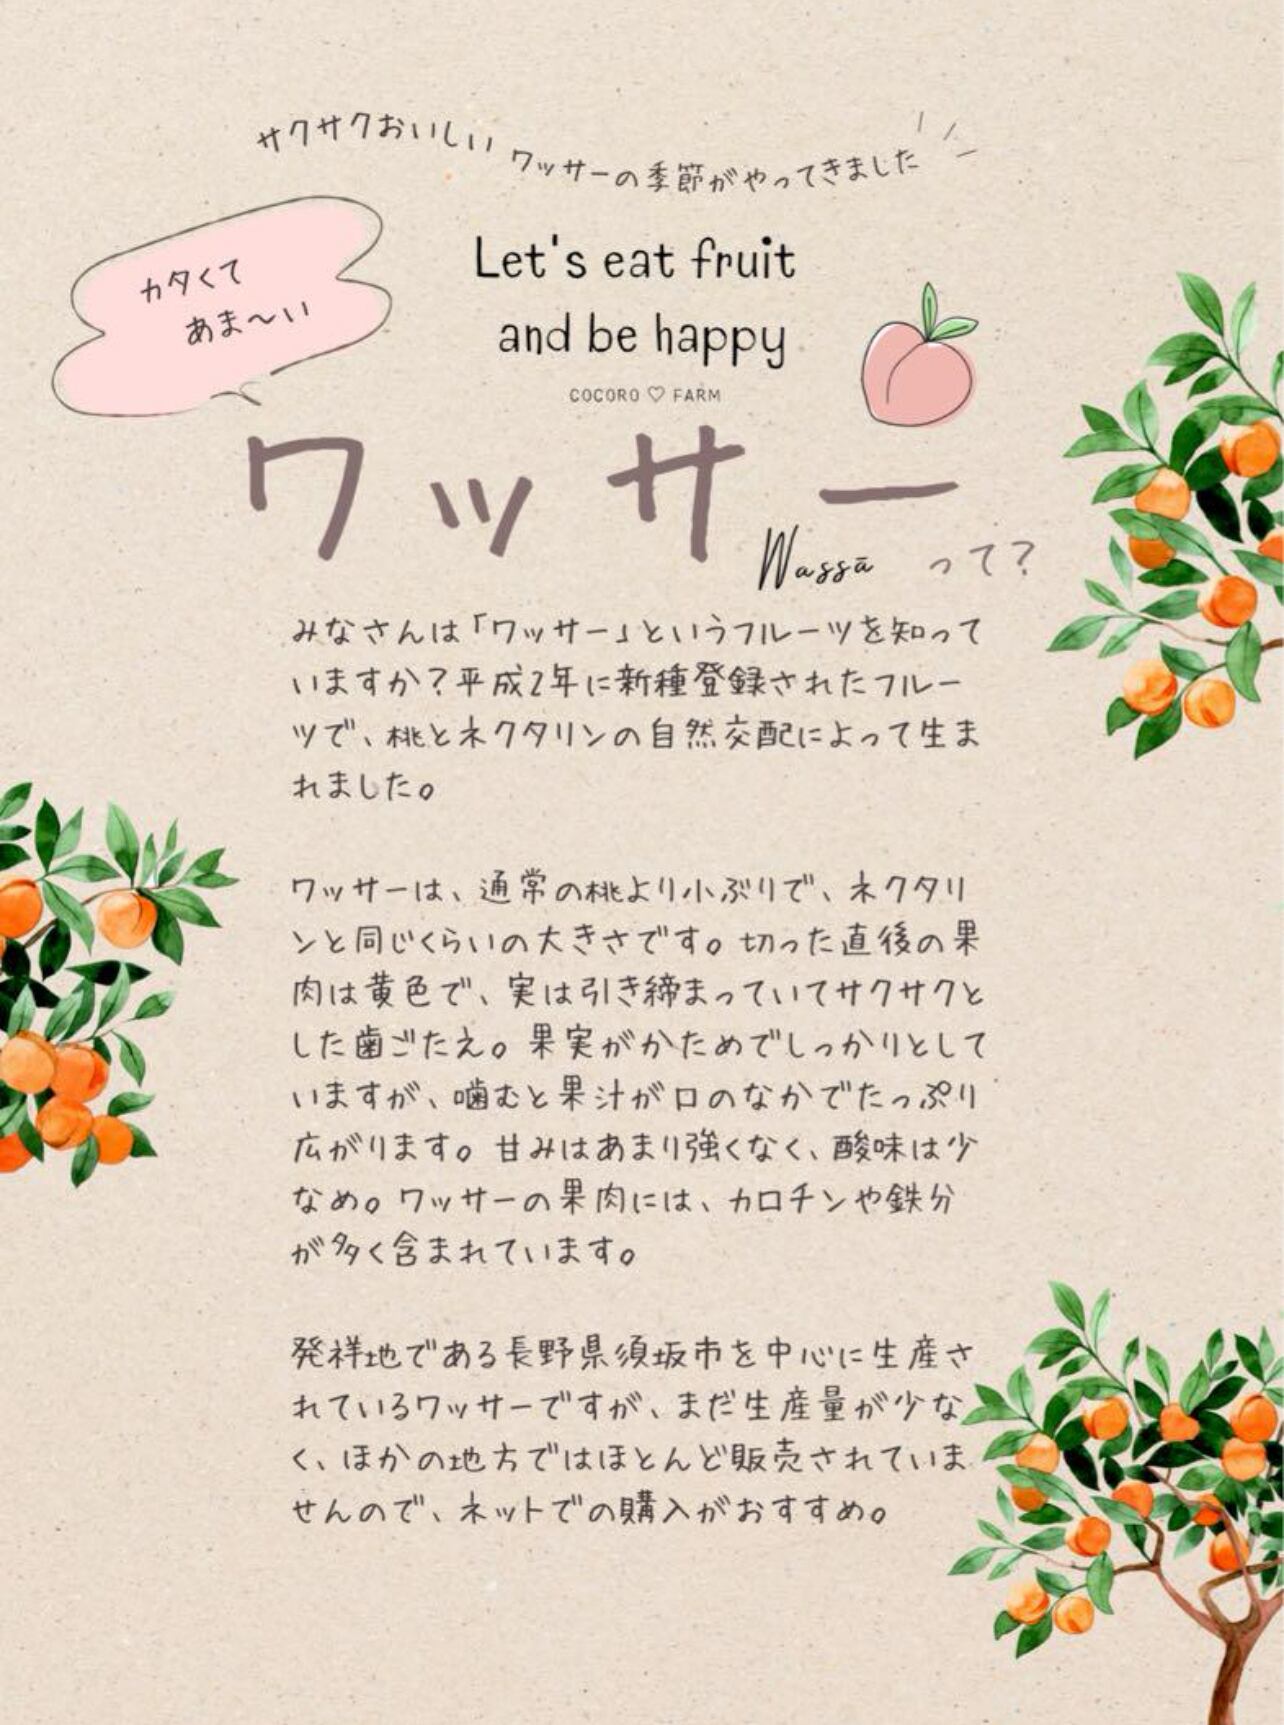 サクサクおいしい ワッサーの季節がやってきました
カタくて
あま〜い
Let's eat fruit
and be happy
COCORO ♡ FARM
ワッサー
Wassā って?
みなさんは「ワッサー」というフルーツを知って
いますか?平成2年に新種登録されたフルー
ツで、桃とネクタリンの自然交配によって生ま
れました。
ワッサーは、通常の桃より小ぶりで、ネクタリ
ンと同じくらいの大きさです。切った直後の果
肉は黄色で、実は引き締まっていてサクサクと
した歯ごたえ。果実がかためでしっかりとして
いますが、噛むと果汁が口のなかでたっぷり
広がります。甘みはあまり強くなく、酸味は少
なめ。ワッサーの果肉には、カロチンや鉄分
が多く含まれています。
発祥地である長野県須坂市を中心に生産さ
れているワッサーですが、まだ生産量が少な
く、ほかの地方ではほとんど販売されていま
せんので、ネットでの購入がおすすめ。